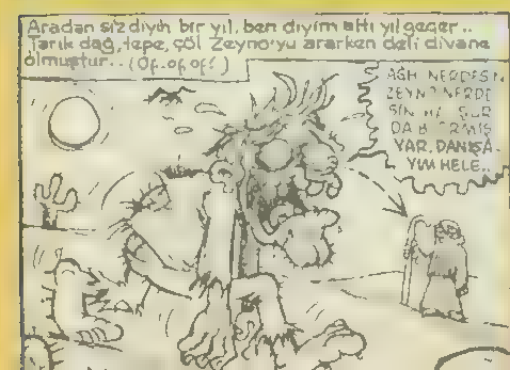 Aradan siz diyin bir yıl, ben diyim altı yıl geçer..
Tarık dağ, tepe, çöl Zeyno'yu ararken deli divane
olmuştur.. (Of.of of!)
AGH NERDESİN
ZEYNO NERDE
SİN HA ŞUR
DA Bİ
YAR. DANIŞA
YIM HELE..